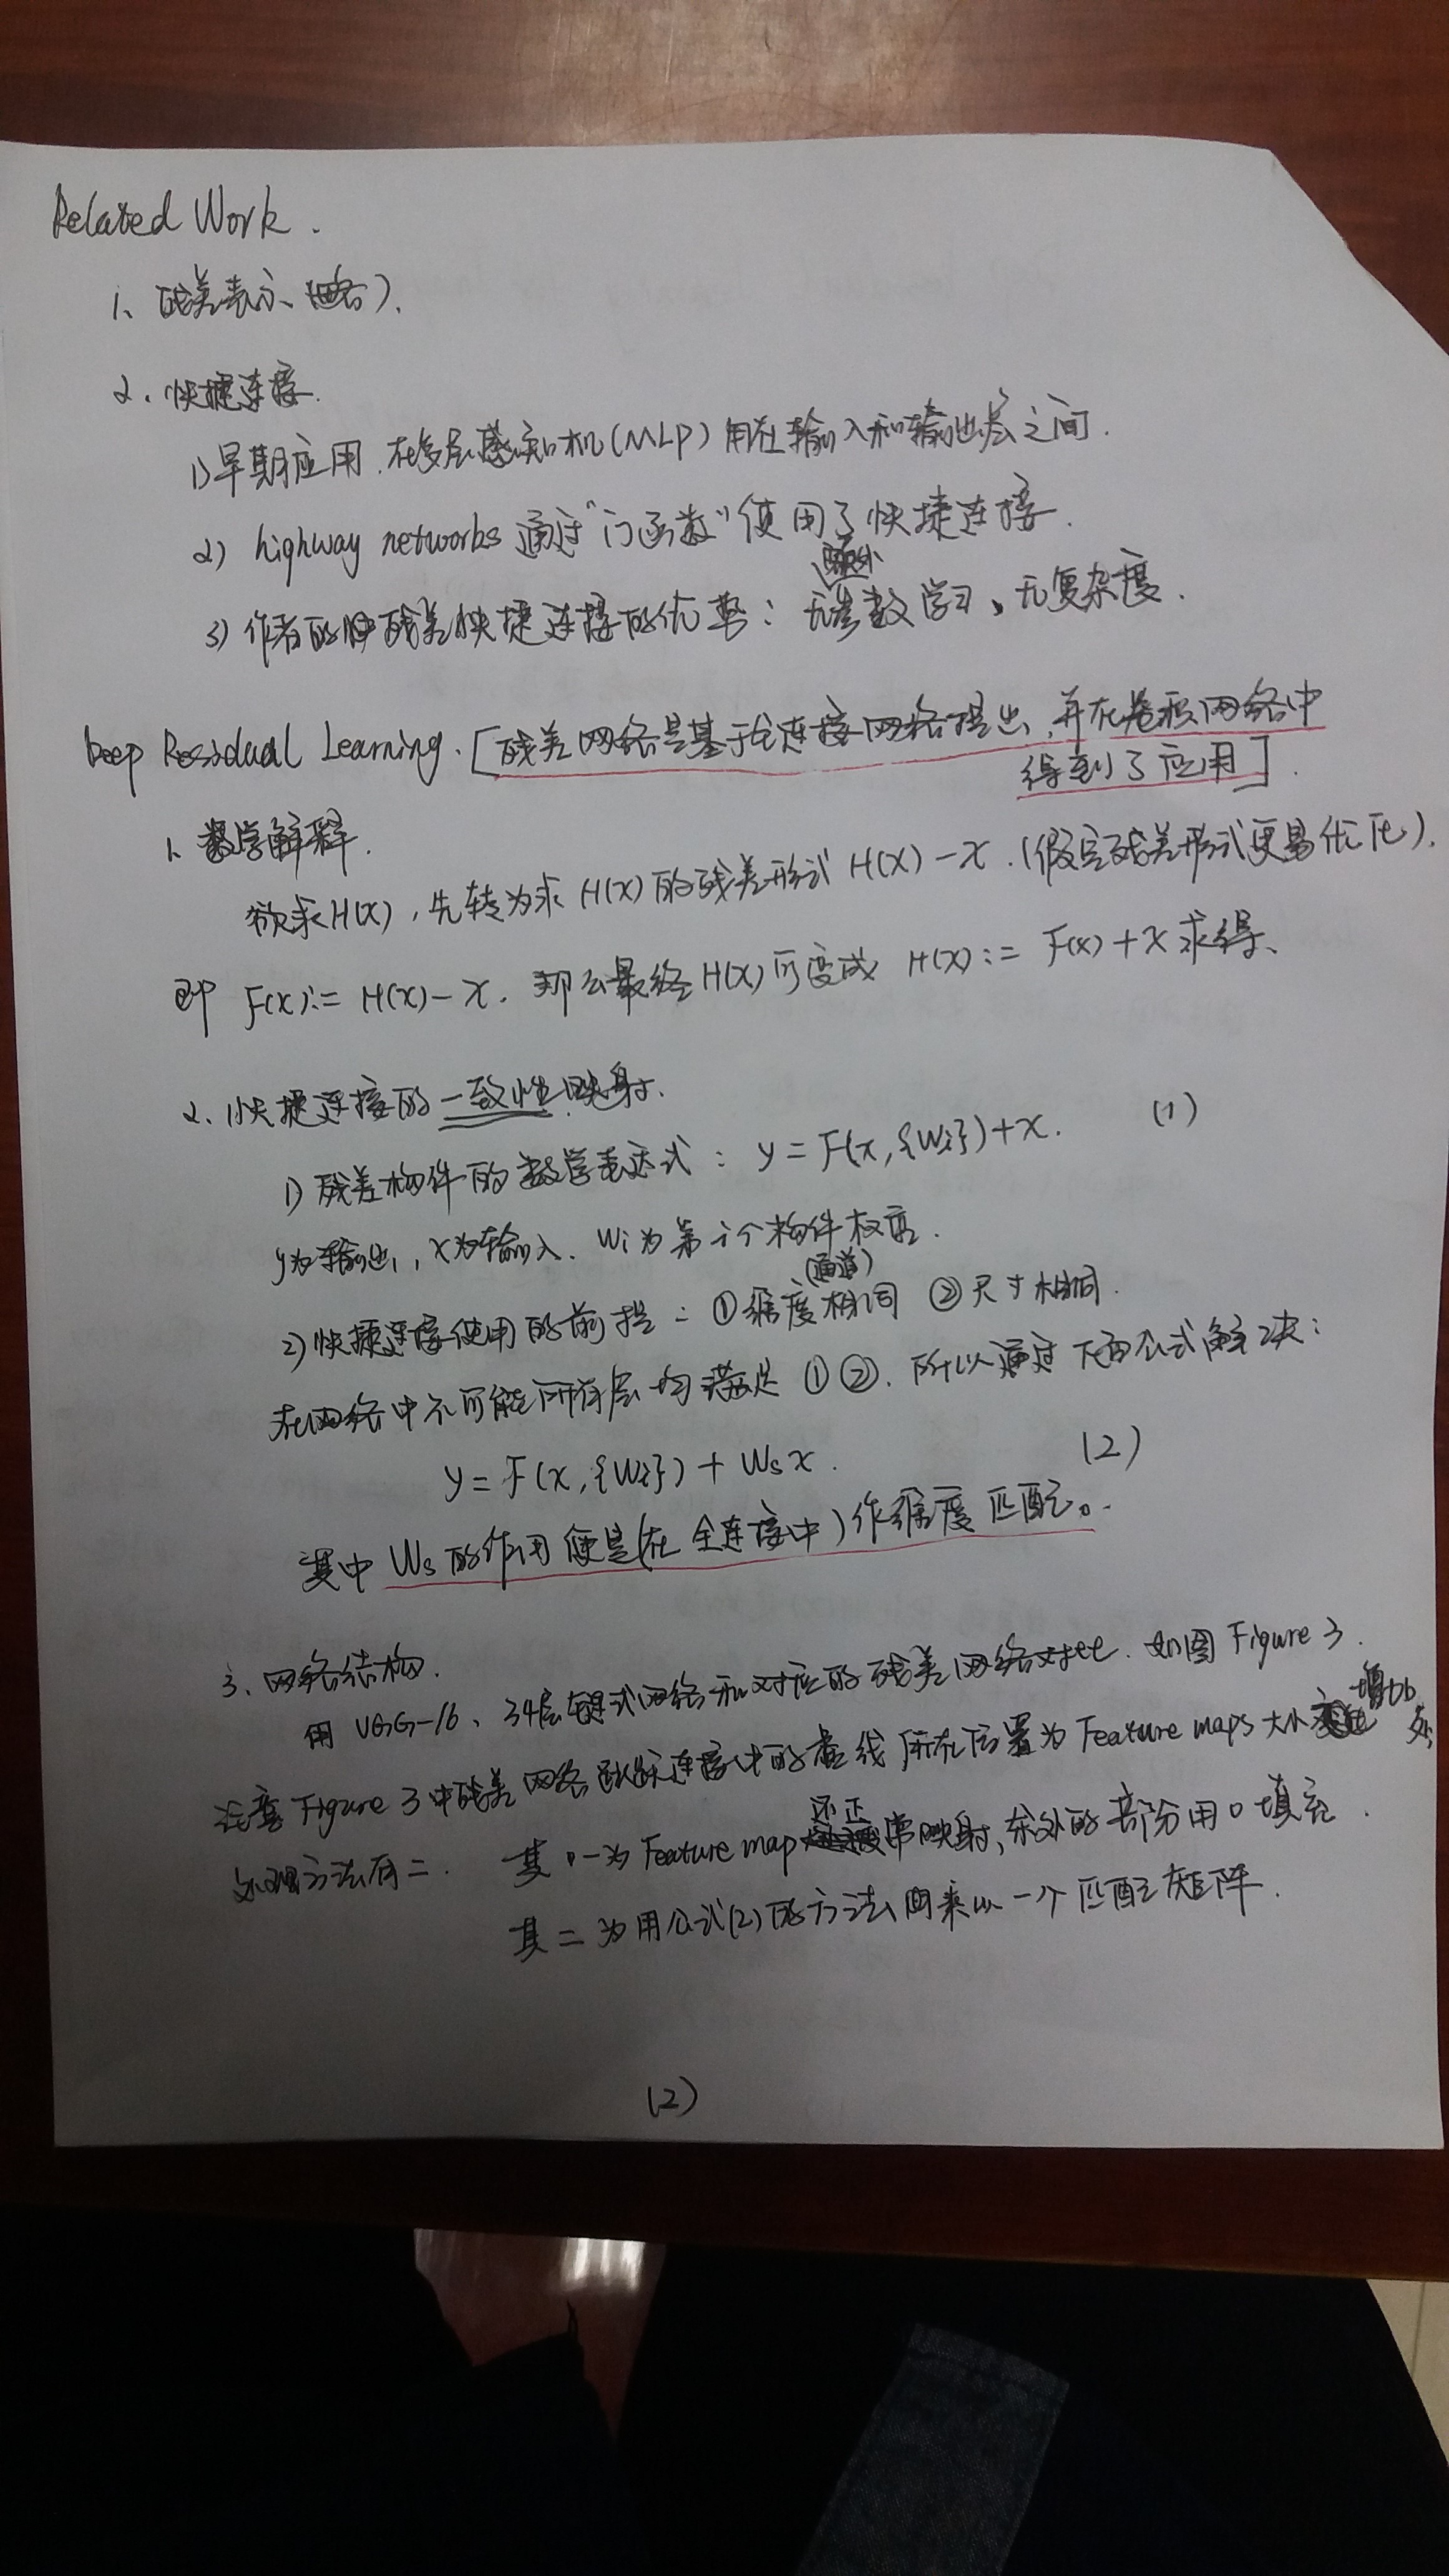 Related Work.
1、残差表示(略).
2、快捷连接.
1)早期应用.在多层感知机(MLP)用在输入和输出层之间.
2) highway networks 通过“门函数”使用了快捷连接.
额外
3) 作者的残差快捷连接的优势：无参数学习、无复杂度.
Deep Residual Learning.[残差网络是基于全连接网络提出,并在卷积网络中
得到了应用].
1、数学解释.
欲求H(x),先转为求H(x)的残差形式H(x)-x.(假定残差形式更易优化).
即 F(x):= H(x)-x. 那么最终H(x)可变成 H(x):= F(x)+x求得、
2、快捷连接的一致性映射.
1) 残差构件的数学表达式: y=F(x,{Wi})+x. (1)
y为输出,x为输入、Wi为第i个构件权重.
(通道)
2)快捷连接使用的前提:①维度相同 ②尺寸相同.
在网络中不可能所有层均满足①②.所以通过下面公式解决:
y=F(x,{Wi})+Wsx. (2)
其中Ws的作用便是(在全连接中)作维度匹配。
3、网络结构.
用 VGG-16、34层链式网络和对应的残差网络对比.如图Figure 3.
增加
注意Figure 3中残差网络跳跃连接中的虚线所在位置为Feature maps大小处,
还正
处理方法有二. 其一为Feature map常映射,余外的部分用0填充.
其二为用公式(2)的方法用来以一个匹配矩阵.
(2)